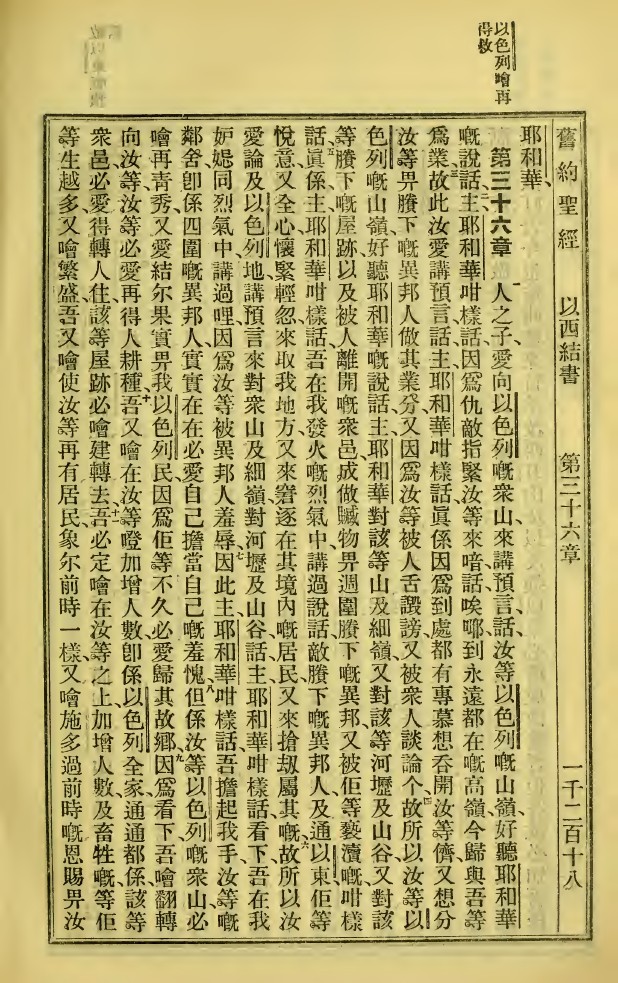 以色列噲再
得救
舊約聖經 以西結書 第三十六章 一千二百十八
耶和華、
第三十六章 一人之子、愛向以色列嘅衆山來講預言話、汝等以色列嘅山嶺、好聽耶和華
嘅說話、二主耶和華咁樣話、因爲仇敵指緊汝等來喑話、唉㖿、到永遠都在嘅高嶺、今歸與吾等
爲業、三故此汝愛講預言話、主耶和華咁樣話、眞係因爲到處都有專慕想呑開汝等儕、又想分
汝等畀賸下嘅異邦人做其業分、又因爲汝等被人舌譭謗、又被衆人談論个、四故所以汝等以
色列嘅山嶺、好聽耶和華嘅說話、主耶和華對該等山及細嶺、又對該等河壢及山谷、又對該
等賸下嘅屋跡、以及被人離開嘅衆邑、成做贓物畀週圍賸下嘅異邦、又被佢等褻瀆嘅、咁樣
話、五眞係主耶和華咁樣話、吾在我發火嘅烈氣中、講過說話、敵賸下嘅異邦人、及通以東、佢等
悅意、又全心懷緊輕忽、來取我地方、又來窘逐在其境內嘅居民、又來搶刼屬其嘅、六故所以汝
愛論及以色列地、講預言來對衆山及細嶺、對河壢及山谷、話、主耶和華咁樣話、看下、吾在我
妒媳同烈氣中講過哩、因爲汝等被異邦人羞辱、七因此主耶和華咁樣話、吾擔起我手、汝等嘅
鄰舍、卽係四圍嘅異邦人、實實在在必愛自己擔當自己嘅羞愧、八但係汝等以色列嘅衆山、必
噲再青秀、又愛結尔果實畀我以色列民、因爲佢等不久必愛歸其故鄉、九因爲看下、吾噲翻轉
向汝等、汝等必愛再得人耕種、十吾又噲在汝等嶝加增人數、卽係以色列全家、通通都係、該等
衆邑必愛得轉人住、該等屋跡必噲建轉去、十一吾必定噲在汝等之上、加增人數及畜牲嘅等、佢
等生越多、又噲繁盛、吾又噲使汝等再有居民、象尔前時一樣、又噲施多過前時嘅恩賜畀汝